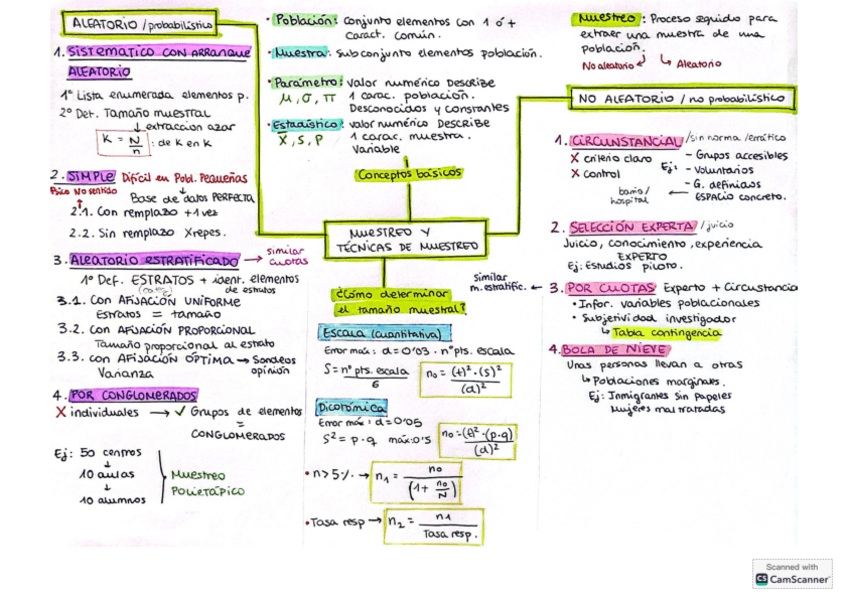 ALEATORIO / probabilístico
1. SISTEMÁTICO CON ARRANQUE
ALEATORIO
1º Lista enumerada elementos p.
2º Det. Tamaño muestral
↓ extracción azar
K = N/n : de K en K
2. SIMPLE Difícil en Pobl. Pequeñas
Poco No sentido
Base de datos PERFECTA
2.1. Con remplazo +1 vez
2.2. Sin remplazo X repes.
3. ALEATORIO ESTRATIFICADO → similar
cuotas
1º Def. ESTRATOS + ident. elementos
de estratos
3.1. Con AFIJACIÓN UNIFORME
Estratos = tamaño
3.2. Con AFIJACIÓN PROPORCIONAL
Tamaño proporcional al estrato
3.3. Con AFIJACIÓN ÓPTIMA → Sondeos
opinión
Varianza
4. POR CONGLOMERADOS
X individuales → ✓ Grupos de elementos
=
CONGLOMERADOS
Ej: 50 centros
↓
10 aulas
↓
10 alumnos
Muestreo
Polietápico
• Población: conjunto elementos con 1 ó +
caract. común.
• Muestra: subconjunto elementos población.
• Parámetro: valor numérico DESCRIBE
μ, σ, π 1 carac. población.
Desconocidos y constantes
• Estadístico: valor numérico DESCRIBE
X̄, S, P 1 carac. muestra.
Variable
Conceptos básicos
MUESTREO Y
TÉCNICAS DE MUESTREO
¿Cómo determinar
el tamaño muestral?
Escala (cuantitativa)
Error máx: d = 0'03 · nº pts. escala
S = nº pts. escala / 6
n₀ = (t)² · (S)² / (d)²
Dicotómica
Error máx: d = 0'05
S² = p · q máx: 0'5
n₀ = (t)² · (p·q) / (d)²
• n > 5% → n₁ = n₀ / (1 + n₀/N)
• Tasa resp → n₂ = n1 / Tasa resp.
Muestreo: Proceso seguido para
extraer una muestra de una
población.
No aleatorio ↙ ↳ Aleatorio
NO ALEATORIO / no probabilístico
1. CIRCUNSTANCIAL / sin norma / errático
X criterio claro
X control
Ej: - Grupos accesibles
- Voluntarios
- G. definidos
ESPACIO concreto.
barrio /
hospital ←
2. SELECCIÓN EXPERTA / juicio
Juicio, conocimiento, experiencia
EXPERTO
Ej: Estudios piloto.
Similar
m. estratific. ←
3. POR CUOTAS Experto + Circunstancia
• Infor. variables poblacionales
• Subjetividad investigador
↳ Tabla contingencia
4. BOLA DE NIEVE
Unas personas llevan a otras
↳ Poblaciones marginales.
Ej: Inmigrantes sin papeles
Mujeres maltratadas
Scanned with
CS CamScanner